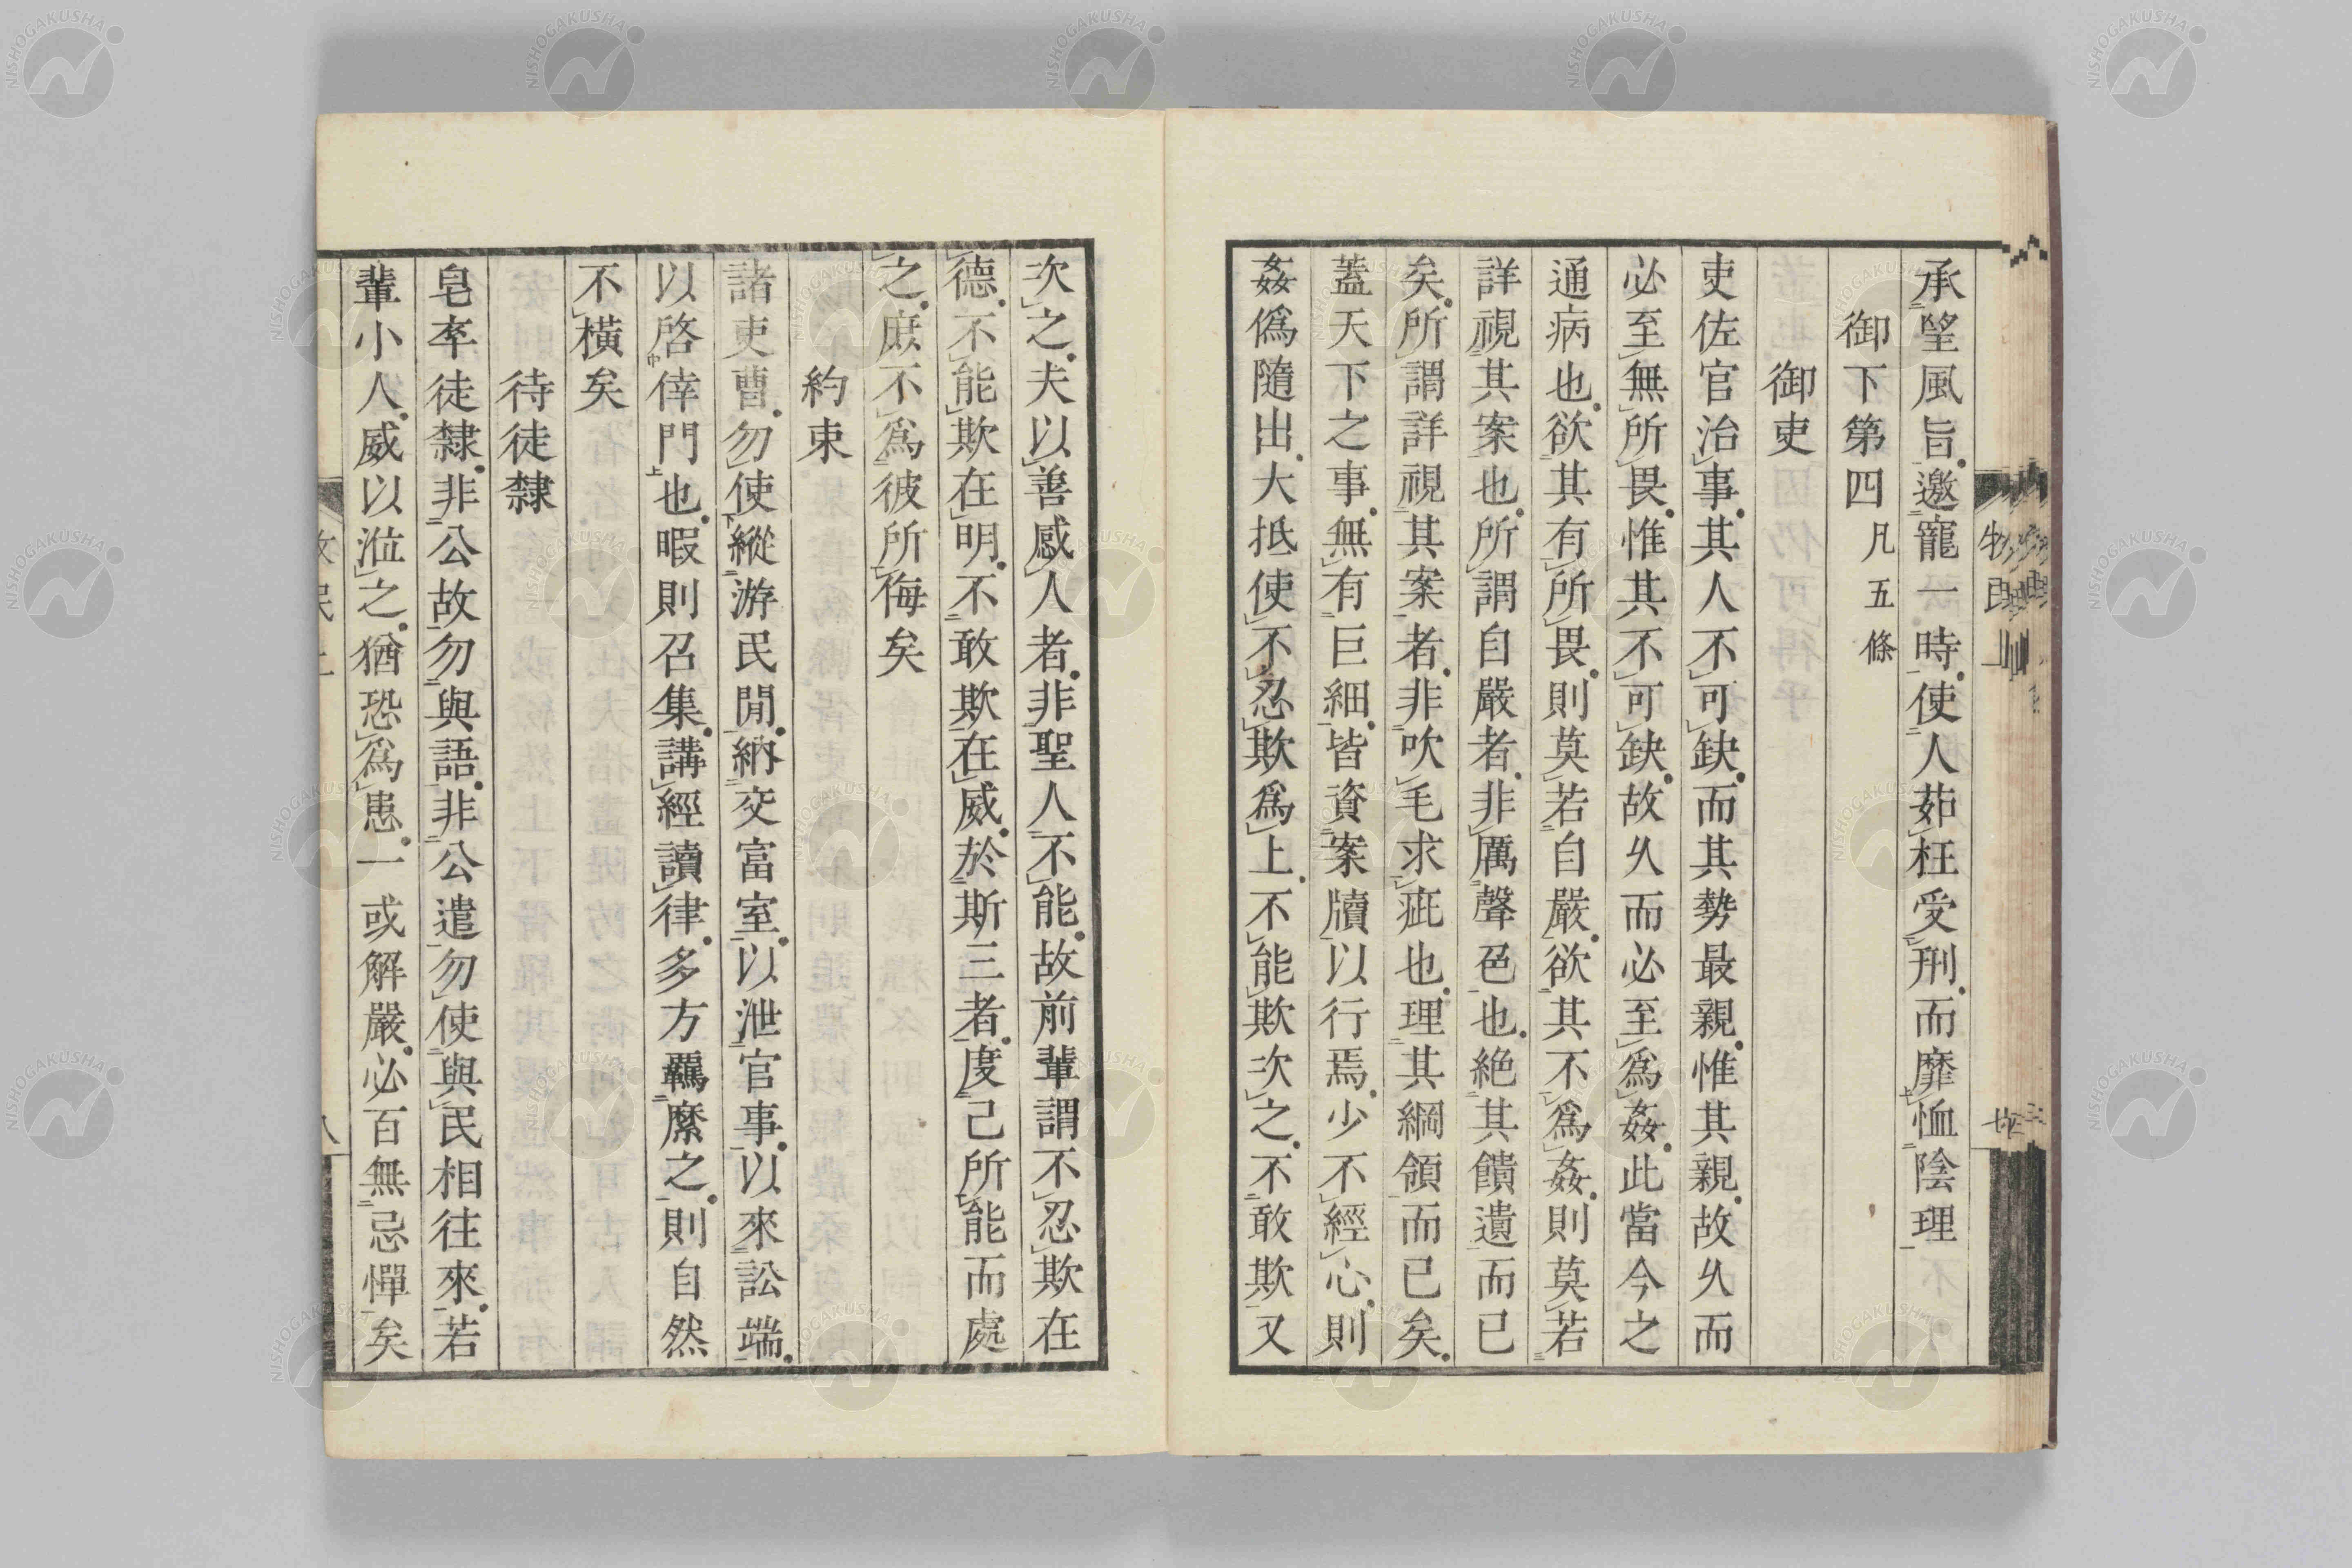 承望風旨邀寵一時使人茹枉受刑而靡恤陰理
御下第四凡五條
御吏
吏佐官治事其人不可缺而其勢最親惟其親故久而
必至無所畏惟其不可缺故久而必至為姦此當今之
通病也欲其有所畏則莫若自嚴欲其不為姦則莫若
詳視其案也所謂自嚴者非厲聲色也絶其饋遺而已
矣所謂詳視其案者非吹毛求疵也理其綱領而已矣
蓋天下之事無有巨細皆資案牘以行焉少不經心則
姦偽隨出大抵使不忍欺為上不能欺次之不敢欺又
次之夫以善感人者非聖人不能故前輩謂不忍欺在
德不能欺在明不敢欺在威於斯三者度己所能而處
之庶不為彼所侮矣
約束
諸吏曹勿使縱游民閒納交富室以泄官事以來訟端
以啓倖門也暇則召集講經讀律多方羈縻之則自然
不橫矣
待徒隸
皂卒徒隸非公故勿與語非公遣勿使與民相往來若
輩小人威以涖之猶恐為患一或解嚴必百無忌憚矣